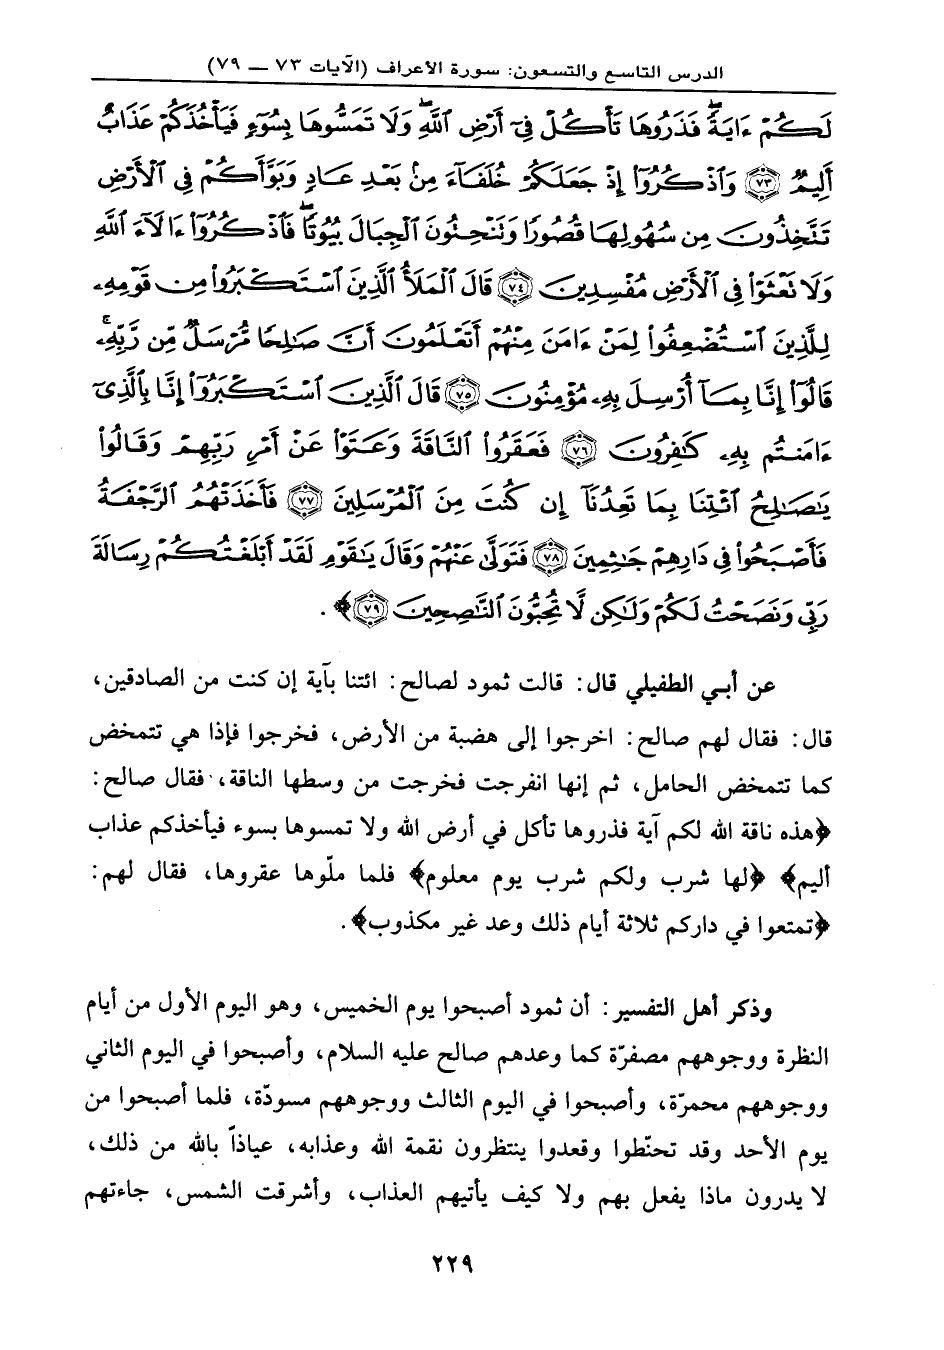 الدرس التاسع والتسعون: سورة الأعراف (الآيات ٧٣ — ٧٩)
لَكُمْ ءَايَةً فَذَرُوهَا تَأْكُلْ فِىٓ أَرْضِ ٱللَّهِ وَلَا تَمَسُّوهَا بِسُوٓءٍ فَيَأْخُذَكُمْ عَذَابٌ
أَلِيمٌ ﴿٧٣﴾ وَٱذْكُرُوٓا۟ إِذْ جَعَلَكُمْ خُلَفَآءَ مِنۢ بَعْدِ عَادٍ وَبَوَّأَكُمْ فِى ٱلْأَرْضِ
تَتَّخِذُونَ مِن سُهُولِهَا قُصُورًا وَتَنْحِتُونَ ٱلْجِبَالَ بُيُوتًا فَٱذْكُرُوٓا۟ ءَالَآءَ ٱللَّهِ
وَلَا تَعْثَوْا۟ فِى ٱلْأَرْضِ مُفْسِدِينَ ﴿٧٤﴾ قَالَ ٱلْمَلَأُ ٱلَّذِينَ ٱسْتَكْبَرُوا۟ مِن قَوْمِهِۦ
لِلَّذِينَ ٱسْتُضْعِفُوا۟ لِمَنْ ءَامَنَ مِنْهُمْ أَتَعْلَمُونَ أَنَّ صَٰلِحًا مُّرْسَلٌ مِّن رَّبِّهِۦ ۚ
قَالُوٓا۟ إِنَّا بِمَآ أُرْسِلَ بِهِۦ مُؤْمِنُونَ ﴿٧٥﴾ قَالَ ٱلَّذِينَ ٱسْتَكْبَرُوٓا۟ إِنَّا بِٱلَّذِىٓ
ءَامَنتُم بِهِۦ كَٰفِرُونَ ﴿٧٦﴾ فَعَقَرُوا۟ ٱلنَّاقَةَ وَعَتَوْا۟ عَنْ أَمْرِ رَبِّهِمْ وَقَالُوا۟
يَٰصَٰلِحُ ٱئْتِنَا بِمَا تَعِدُنَآ إِن كُنتَ مِنَ ٱلْمُرْسَلِينَ ﴿٧٧﴾ فَأَخَذَتْهُمُ ٱلرَّجْفَةُ
فَأَصْبَحُوا۟ فِى دَارِهِمْ جَٰثِمِينَ ﴿٧٨﴾ فَتَوَلَّىٰ عَنْهُمْ وَقَالَ يَٰقَوْمِ لَقَدْ أَبْلَغْتُكُمْ رِسَالَةَ
رَبِّى وَنَصَحْتُ لَكُمْ وَلَٰكِن لَّا تُحِبُّونَ ٱلنَّٰصِحِينَ ﴿٧٩﴾﴾ .
عن أبي الطفيلي قال: قالت ثمود لصالح: ائتنا بآية إن كنت من الصادقين،
قال: فقال لهم صالح: اخرجوا إلى هضبة من الأرض، فخرجوا فإذا هي تتمخض
كما تتمخض الحامل، ثم إنها انفرجت فخرجت من وسطها الناقة، فقال صالح:
﴿هذه ناقة الله لكم آية فذروها تأكل في أرض الله ولا تمسوها بسوء فيأخذكم عذاب
أليم﴾ ﴿لها شرب ولكم شرب يوم معلوم﴾ فلما ملّوها عقروها، فقال لهم:
﴿تمتعوا في داركم ثلاثة أيام ذلك وعد غير مكذوب﴾.
وذكر أهل التفسير: أن ثمود أصبحوا يوم الخميس، وهو اليوم الأول من أيام
النظرة ووجوههم مصفرّة كما وعدهم صالح عليه السلام، وأصبحوا في اليوم الثاني
ووجوههم محمرّة، وأصبحوا في اليوم الثالث ووجوههم مسودّة، فلما أصبحوا من
يوم الأحد وقد تحنّطوا وقعدوا ينتظرون نقمة الله وعذابه، عياذاً بالله من ذلك،
لا يدرون ماذا يفعل بهم ولا كيف يأتيهم العذاب، وأشرقت الشمس، جاءتهم
٢٢٩